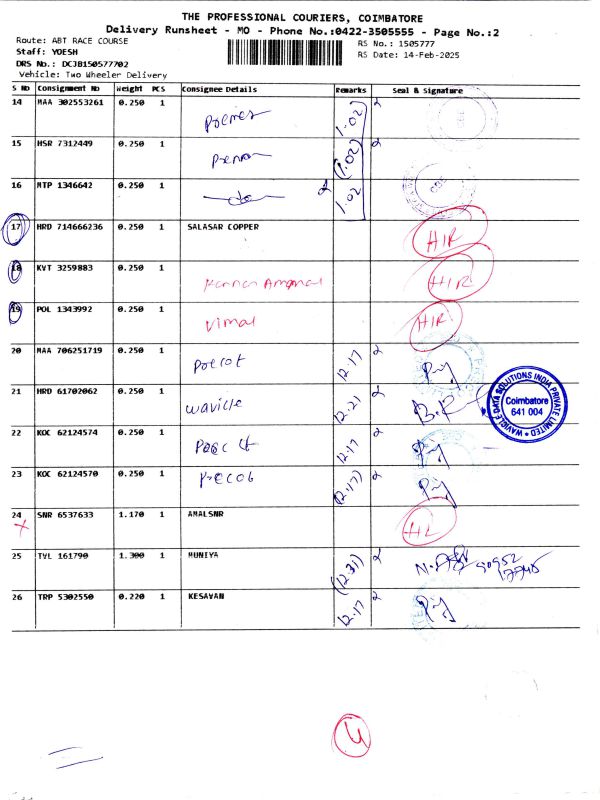 THE PROFESSIONAL COURIERS, COIMBATORE
Delivery Runsheet - MO - Phone No.:0422-3505555 - Page No.:2
Route: ABT RACE COURSE
RS No.: 1505777
Staff: YOESH
RS Date: 14-Feb-2025
DRS No.: DCJB150577702
Vehicle: Two Wheeler Delivery
S No Consignment No Weight PCS Consignee Details Remarks Seal & Signature
14 MAA 302553261 0.250 1 1.02
15 HSR 7312449 0.250 1 (1.02)
16 MTP 1346642 0.250 1 1.02
17 HRD 714666236 0.250 1 SALASAR COPPER HIR
18 KVT 3259883 0.250 1 HIR
19 POL 1343992 0.250 1 Vimal HIR
20 MAA 706251719 0.250 1 12.17
21 HRD 61702062 0.250 1 wavicle 12.21
WAVICLE DATA SOLUTIONS INDIA PRIVATE LIMITED
Coimbatore
641 004
22 KOC 62124574 0.250 1 12.17
23 KOC 62124570 0.250 1 (12.17)
24 SNR 6537633 1.170 1 AMALSNR HL
25 TYL 161790 1.300 1 MUNIYA (12.31)
26 TRP 5302550 0.220 1 KESAVAN 12.17
4